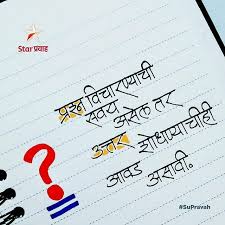 Star प्रवाह
प्रश्न विचारण्याची
सवय असेल तर
उत्तर शोधण्याचीही
आवड असावी.
?
#SuPravah